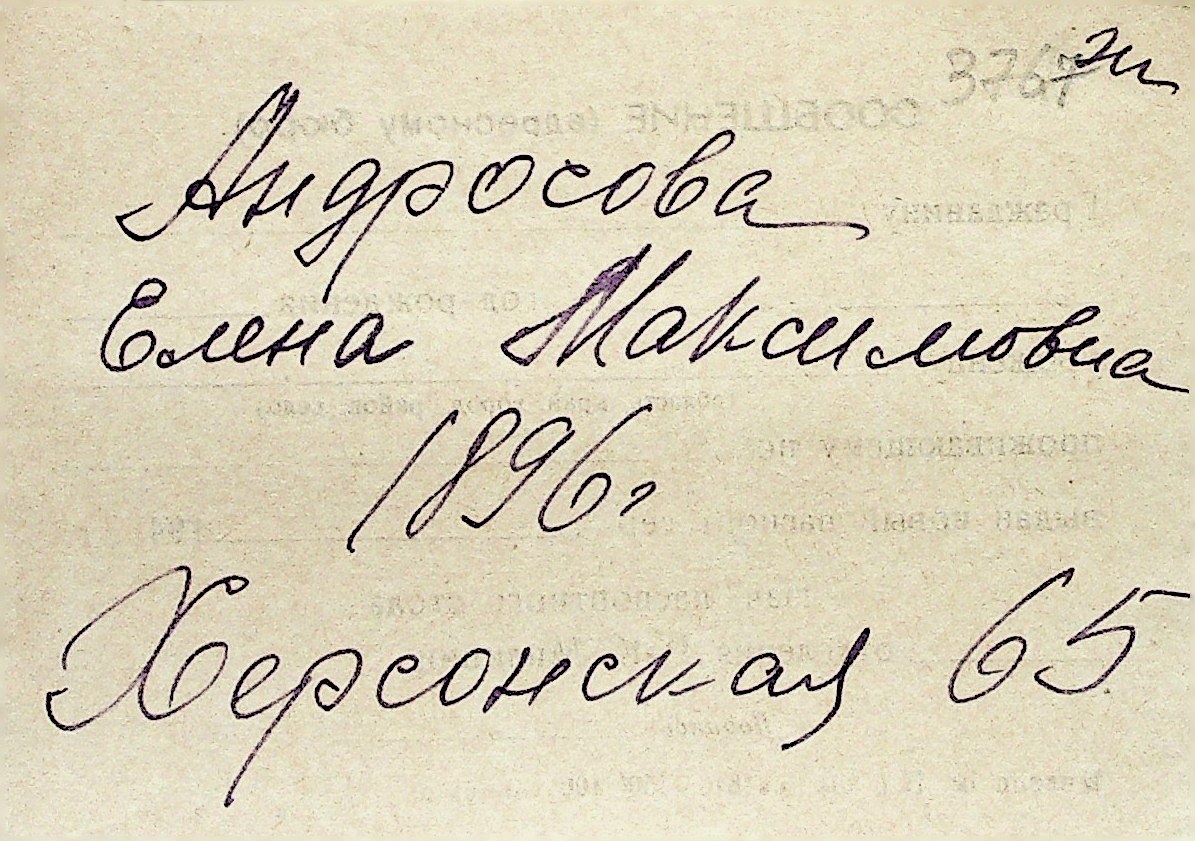 3767
Андросова
Елена Максимовна
1896 г
Херсонская 65